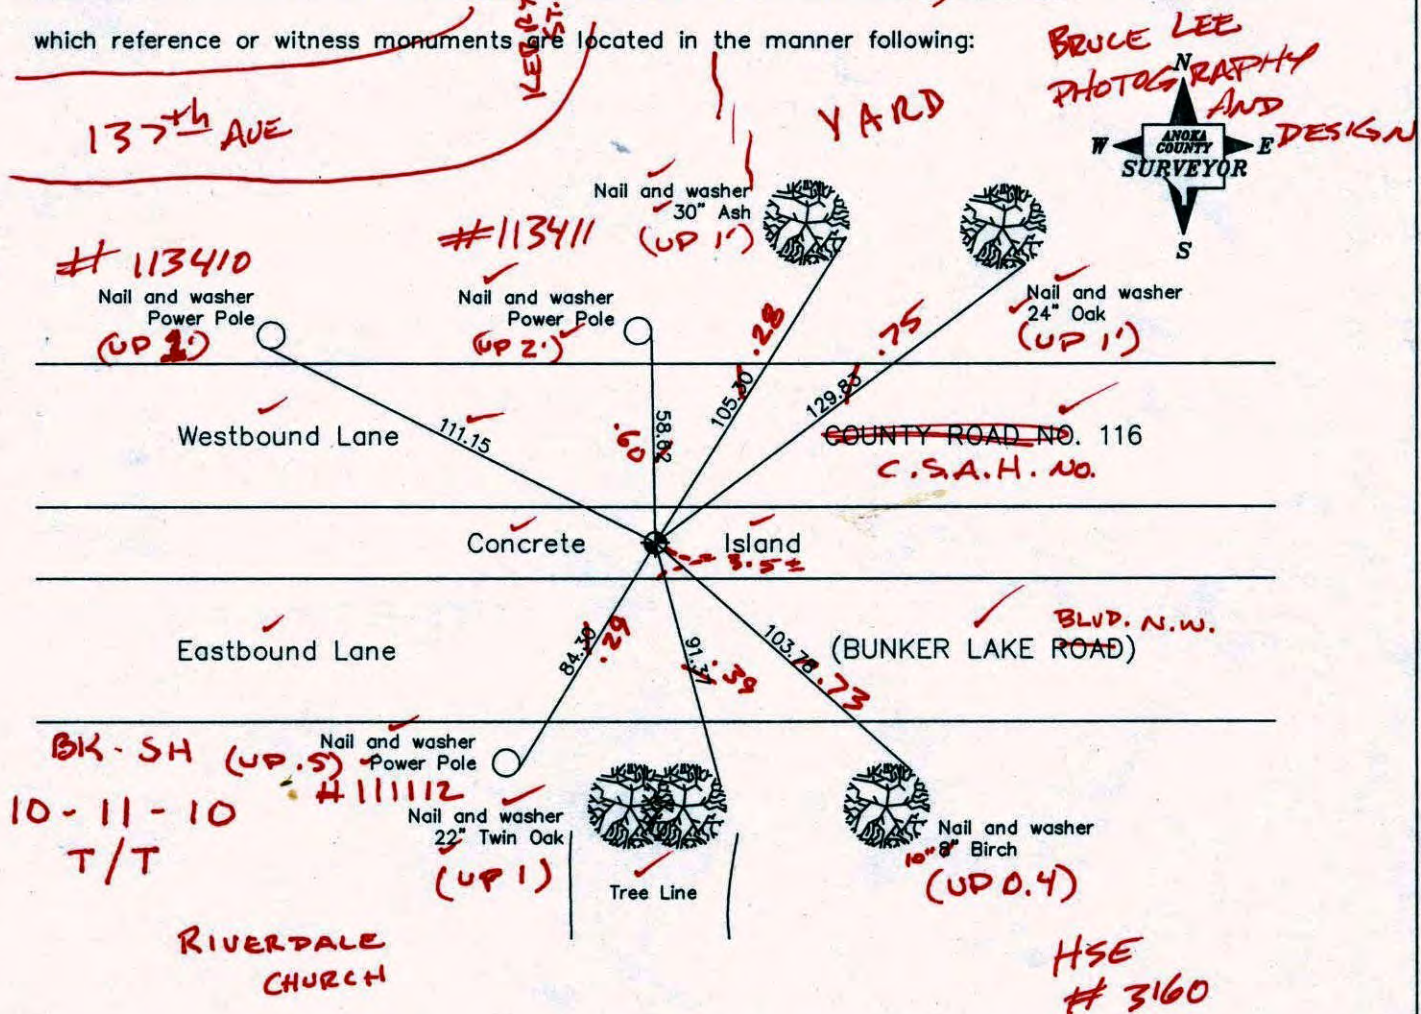 which reference or witness monuments are located in the manner following:
BRUCE LEE
PHOTOGRAPHY
AND
DESIGN
137th AVE
ST.
YARD
N
W
ANOKA
COUNTY
SURVEYOR
E
S
Nail and washer
30" Ash
(UP 1')
# 113410
Nail and washer
Power Pole
#113411
Nail and washer
Power Pole
(UP 2')
Nail and washer
24" Oak
(UP 1')
.28
.75
105.30
129.83
Westbound Lane
111.15
58.62
.60
COUNTY ROAD NO. 116
C.S.A.H. NO.
Concrete
Island
3.5±
Eastbound Lane
84.30
.29
91.37
.38
103.78
.73
(BUNKER LAKE ROAD)
BLVD. N.W.
BK - SH
10 - 11 - 10
T/T
(UP .5)
Nail and washer
Power Pole
# 111112
Nail and washer
22" Twin Oak
(UP 1)
Tree Line
Nail and washer
10" 8" Birch
(UP 0.4)
RIVERDALE
CHURCH
HSE
# 3160